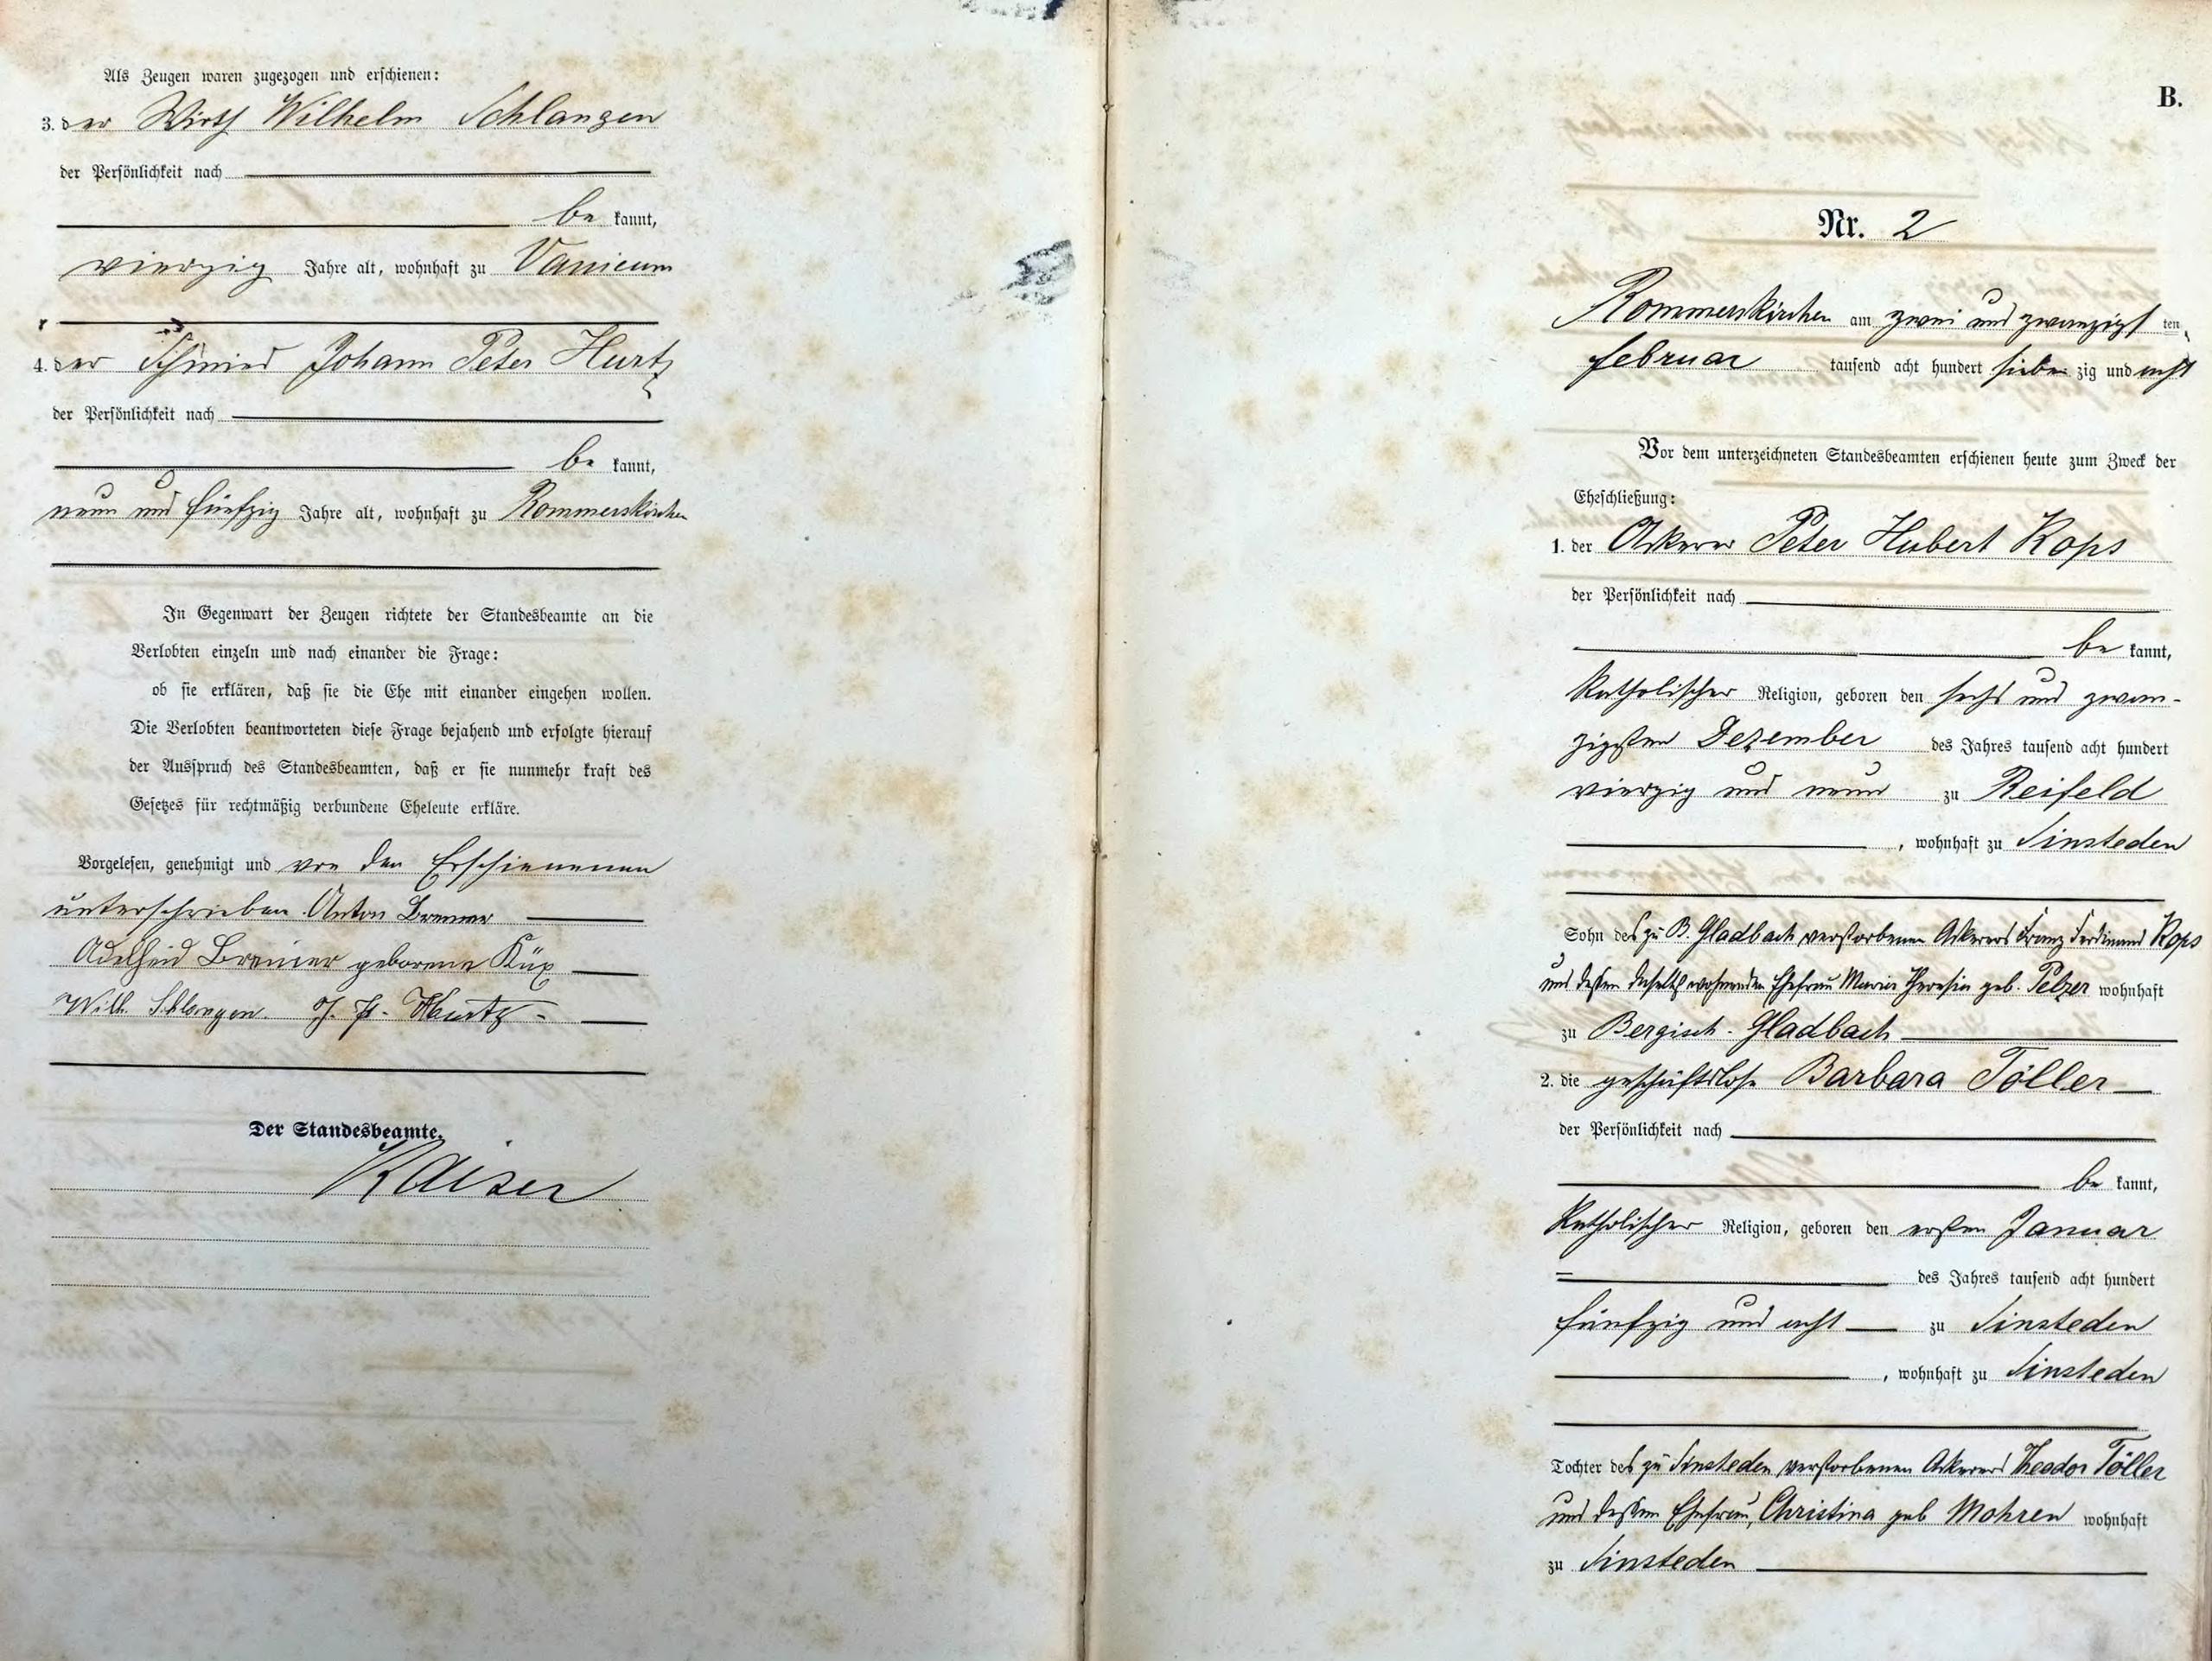 Als Zeugen waren zugezogen und erschienen:
3. der Wirth Wilhelm Schlangen
der Persönlichkeit nach
be kannt,
vierzig Jahre alt, wohnhaft zu Vanicum
4. der Schmied Johann Peter Hurtz
der Persönlichkeit nach
be kannt,
neun und fünfzig Jahre alt, wohnhaft zu Rommerskirchen
In Gegenwart der Zeugen richtete der Standesbeamte an die
Verlobten einzeln und nach einander die Frage:
ob sie erklären, daß sie die Ehe mit einander eingehen wollen.
Die Verlobten beantworteten diese Frage bejahend und erfolgte hierauf
der Ausspruch des Standesbeamten, daß er sie nunmehr kraft des
Gesetzes für rechtmäßig verbundene Eheleute erkläre.
Vorgelesen, genehmigt und von den Erschienenen
unterschrieben. Anton
Adelheid geborene Küx
Wilh. Schlangen. J. P. Hurtz
Der Standesbeamte.
Kaiser
B.
Nr. 2
Rommerskirchen am zwei und zwanzigst ten
Februar tausend acht hundert sieben zig und acht
Vor dem unterzeichneten Standesbeamten erschienen heute zum Zweck der
Eheschließung:
1. der Ackerer Peter Hubert Kops
der Persönlichkeit nach
be kannt,
Katholischer Religion, geboren den sechs und zwan-
zigsten Dezember des Jahres tausend acht hundert
vierzig und neun zu Reifeld
, wohnhaft zu Sinsteden
Sohn des zu B. Gladbach verstorbenen Ackerers Franz Ferdinand Kops
und dessen daselbst wohnenden Ehefrau Maria Theresia geb. Pelzer wohnhaft
zu Bergisch-Gladbach
2. die geschäftslose Barbara Töller
der Persönlichkeit nach
be kannt,
Katholischer Religion, geboren den ersten Januar
des Jahres tausend acht hundert
fünfzig und acht zu Sinsteden
, wohnhaft zu Sinsteden
Tochter des zu Sinsteden verstorbenen Ackerers Theodor Töller
und dessen Ehefrau, Christina geb Mohren wohnhaft
zu Sinsteden